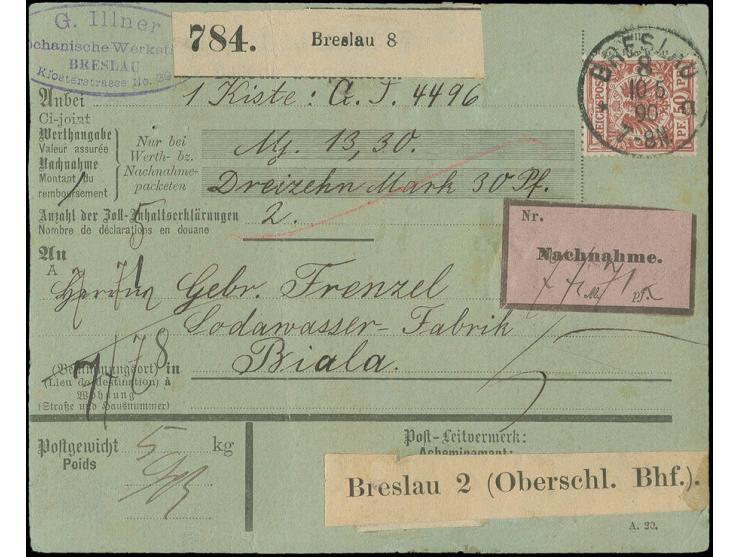 G. Illner
Mechanische Werkstatt
BRESLAU
Klosterstrasse No.
784. Breslau 8
BRESLAU
8
10 6
90
7-8N.
a
REICHSPOST
50 PF.
Anbei 1 Kiste: G. J. 4496
Ci-joint
Werthangabe
Valeur assurée
Nachnahme
Montant du
remboursement
Nur bei
Werth- bz.
Nachnahme-
packeten
M. 13,30.
Dreizehn Mark 30 Pf.
Anzahl der Zoll-Inhaltserklärungen 2.
Nombre de déclarations en douane
5
Nr.
Nachnahme.
M. Pf.
An
A
Herren Gebr. Frenzel
Sodawasser-Fabrik
(Bestimmungsort) in Biala.
(Lieu de destination) à
Wohnung
(Straße und Hausnummer)
78
Postgewicht 5 kg
Poids
Post-Leitvermerk:
Acheminement:
Breslau 2 (Oberschl. Bhf.).
A. 20.